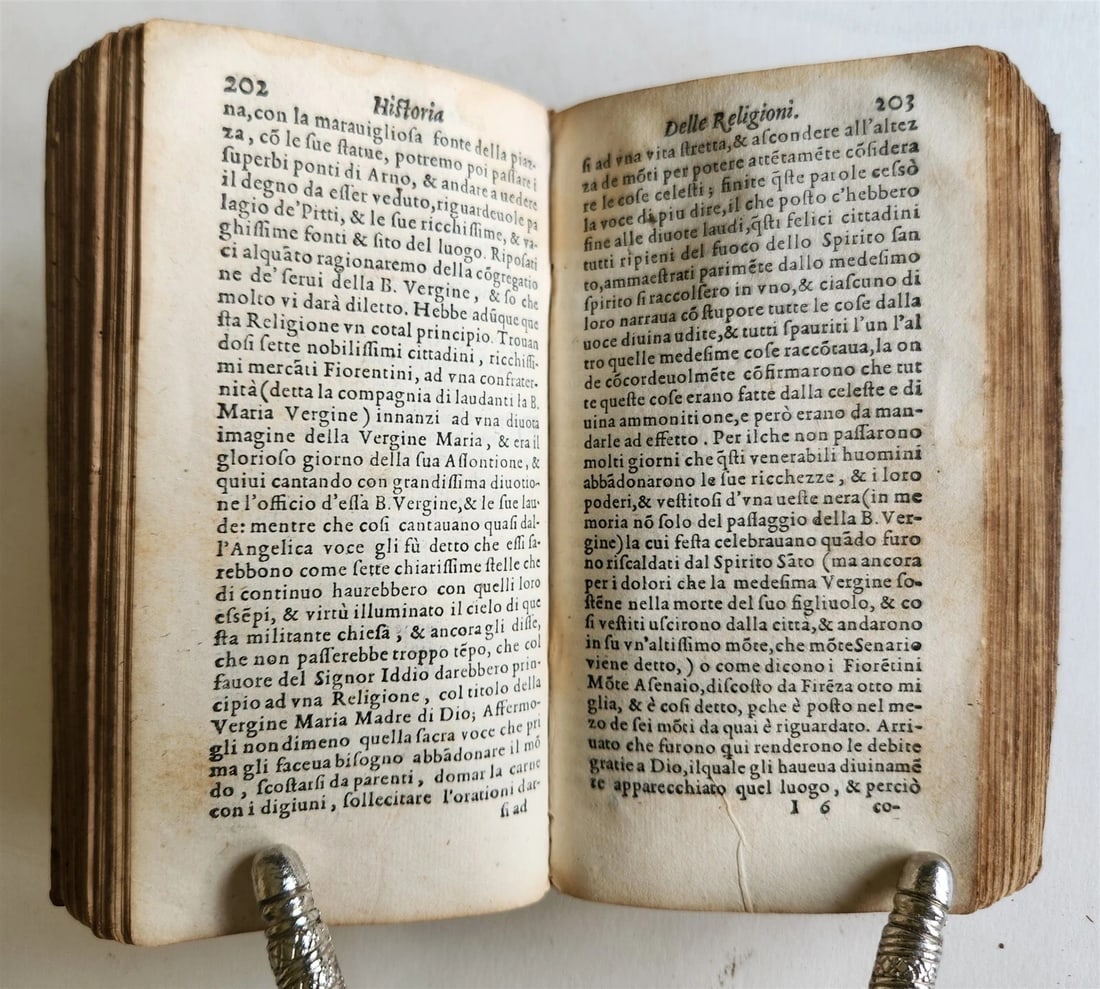 202
Hiſtoria
na, con la marauiglioſa fonte della piaz-
za, cõ le ſue ſtatue, potremo poi paſſare i
ſuperbi ponti di Arno, & andare a uedere
il degno da eſſer veduto, riguardeuole pa
lagio de'Pitti, & le ſue ricchiſſime, & va-
ghiſſime fonti & ſito del luogo. Ripoſati
ci alquãto ragionaremo della cõgregatio
ne de' ſerui della B. Vergine, & ſo che
molto vi darà diletto. Hebbe adũque que
ſta Religione vn cotal principio. Trouan
doſi ſette nobiliſſimi cittadini, ricchiſſi-
mi mercãti Fiorentini, ad vna confrater-
nità (detta la compagnia di laudanti la B.
Maria Vergine) innanzi ad vna diuota
imagine della Vergine Maria, & era il
glorioſo giorno della ſua Aſſontione, &
quiui cantando con grandiſſima diuotio-
ne l'officio d'eſſa B. Vergine, & le ſue lau-
de: mentre che coſi cantauano quaſi dal-
l'Angelica voce gli fù detto che eſſi ſa-
rebbono come ſette chiariſſime ſtelle che
di continuo haurebbero con quelli loro
eſsẽpi, & virtù illuminato il cielo di que
ſta militante chieſa, & ancora gli diſſe,
che non paſſerebbe troppo tẽpo, che col
fauore del Signor Iddio darebbero prin-
cipio ad vna Religione, col titolo della
Vergine Maria Madre di Dio; Affermo-
gli nondimeno quella ſacra voce che pri
ma gli faceua biſogno abbãdonare il mõ
do, ſcoſtarſi da parenti, domar la carne
con i digiuni, ſollecitare l'orationi dar-
ſi ad
Delle Religioni.
203
ſi ad vna vita ſtretta, & aſcondere all'altez
za de mõti per potere attẽtamẽte cõſidera
re le coſe celeſti; finite q̃ſte parole ceſsò
la voce di piu dire, il che poſto c'hebbero
fine alle diuote laudi, q̃ſti felici cittadini
tutti ripieni del fuoco dello Spirito ſan
to, ammaeſtrati parimẽte dallo medeſimo
ſpirito ſi raccolſero in vno, & ciaſcuno di
loro narraua cõ ſtupore tutte le coſe dalla
uoce diuina udite, & tutti ſpauriti l'un l'al
tro quelle medeſime coſe raccõtaua, la on
de cõcordeuolmẽte cõfirmarono che tut
te queſte coſe erano fatte dalla celeſte e di
uina ammoniti one, e però erano da man-
darle ad effetto. Per ilche non paſſarono
molti giorni che q̃ſti venerabili huomini
abbãdonarono le ſue ricchezze, & i loro
poderi, & veſtitoſi d'vna ueſte nera (in me
moria nõ ſolo del paſſaggio della B. Ver-
gine) la cui feſta celebrauano quãdo furo
no riſcaldati dal Spirito Sãto (ma ancora
per i dolori che la medeſima Vergine ſo-
ſtẽne nella morte del ſuo figliuolo, & co
ſi veſtiti uſcirono dalla città, & andarono
in ſu vn'altiſſimo mõte, che mõte Senario
viene detto,) o come dicono i Fiorẽtini
Mõte Aſenaio, diſcoſto da Firẽza otto mi
glia, & è coſi detto, pche è poſto nel me-
zo de ſei mõti da quai è riguardato. Arri-
uato che furono qui renderono le debite
gratie a Dio, ilquale gli haueua diuinamẽ
te apparecchiato quel luogo, & perciò
I 6 co-